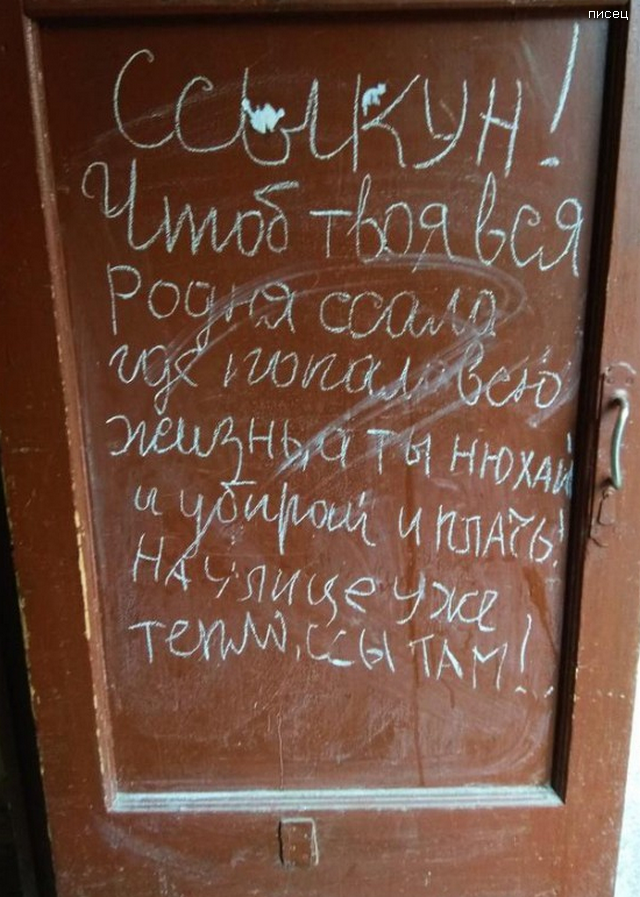 писец
Ссыкун!
Чтоб твоя вся
Родня ссала
где попало всю
жизнь, а ты нюхай
и убирай и плачь!
На улице уже
тепло, ссы там!..